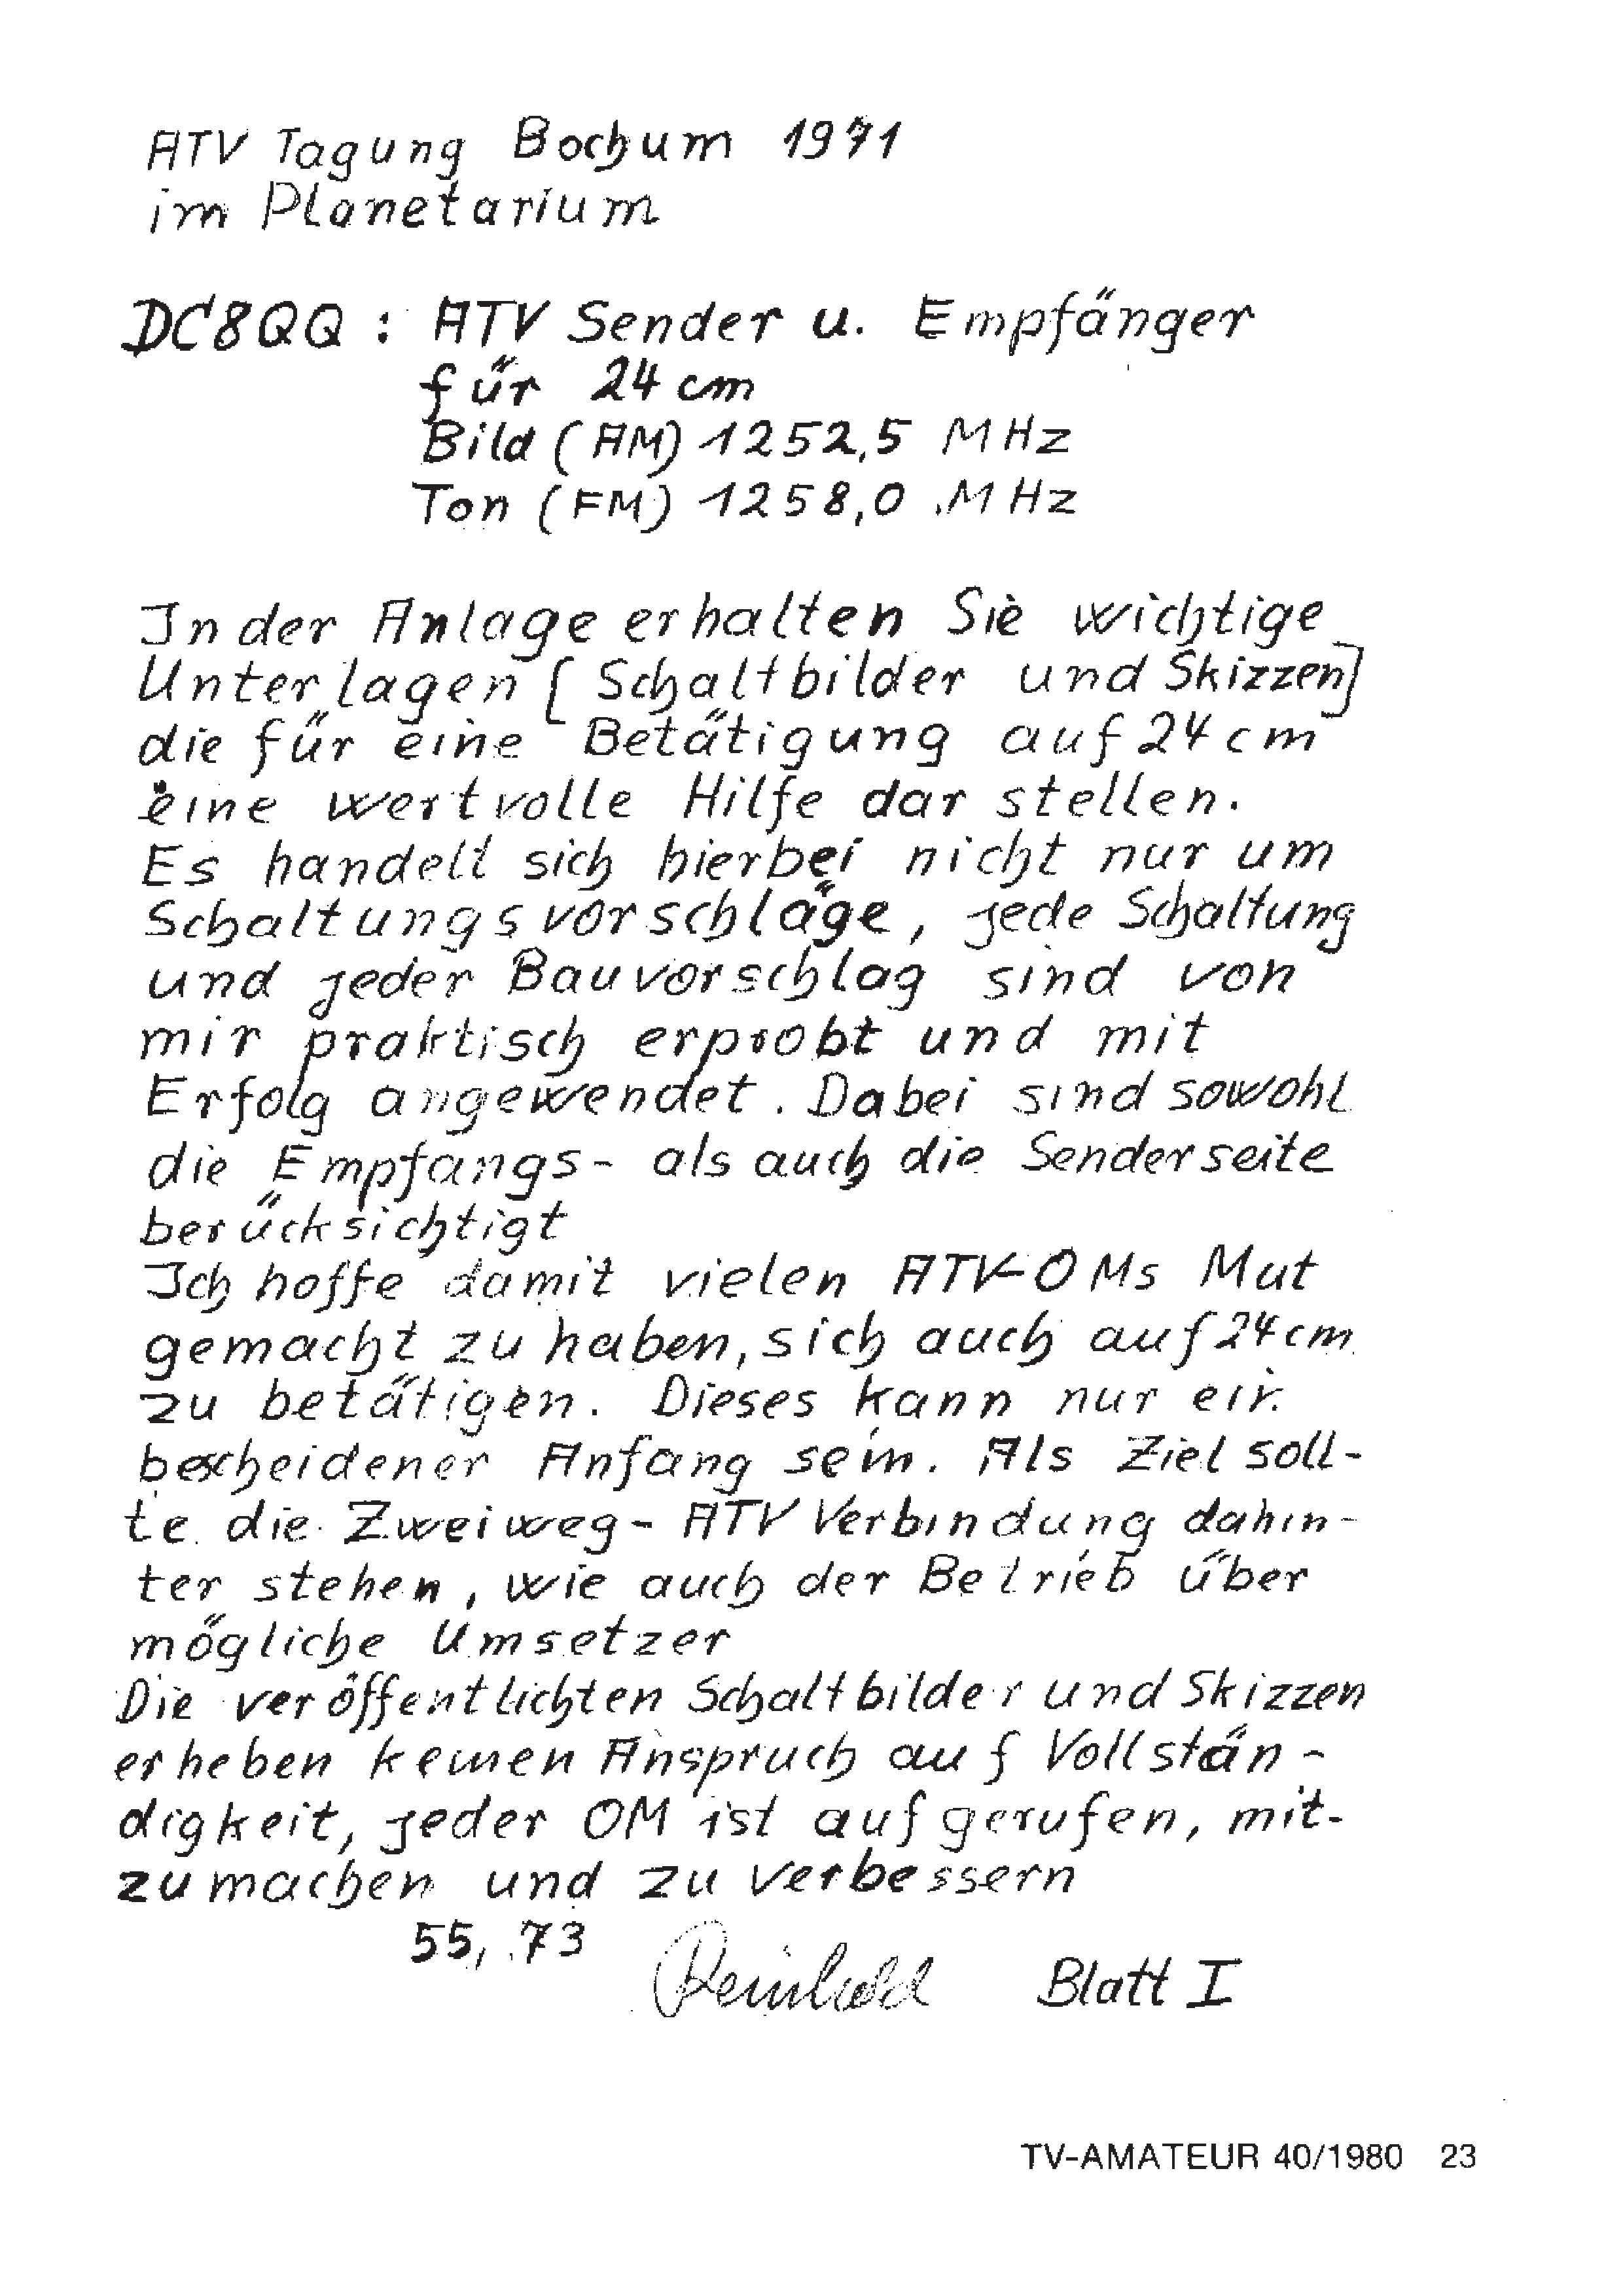 ATV Tagung Bochum 1971
im Planetarium
DC8QQ : ATV Sender u. Empfänger
für 24 cm
Bild (AM) 1252,5 MHz
Ton (FM) 1258,0 MHz
In der Anlage erhalten Sie wichtige
Unterlagen [Schaltbilder und Skizzen]
die für eine Betätigung auf 24 cm
eine wertvolle Hilfe dar stellen.
Es handelt sich hierbei nicht nur um
Schaltungsvorschläge, jede Schaltung
und jeder Bauvorschlag sind von
mir praktisch erprobt und mit
Erfolg angewendet. Dabei sind sowohl
die Empfangs- als auch die Senderseite
berücksichtigt
Ich hoffe damit vielen ATV-OMs Mut
gemacht zu haben, sich auch auf 24 cm
zu betätigen. Dieses kann nur ein
bescheidener Anfang sein. Als Ziel soll-
te die Zweiweg- ATV Verbindung dahin-
ter stehen, wie auch der Betrieb über
mögliche Umsetzer
Die veröffentlichten Schaltbilder und Skizzen
erheben keinen Anspruch auf Vollstän-
digkeit, jeder OM ist aufgerufen, mit-
zumachen und zu verbessern
55, 73 Reinhold Blatt I
TV-AMATEUR 40/1980 23